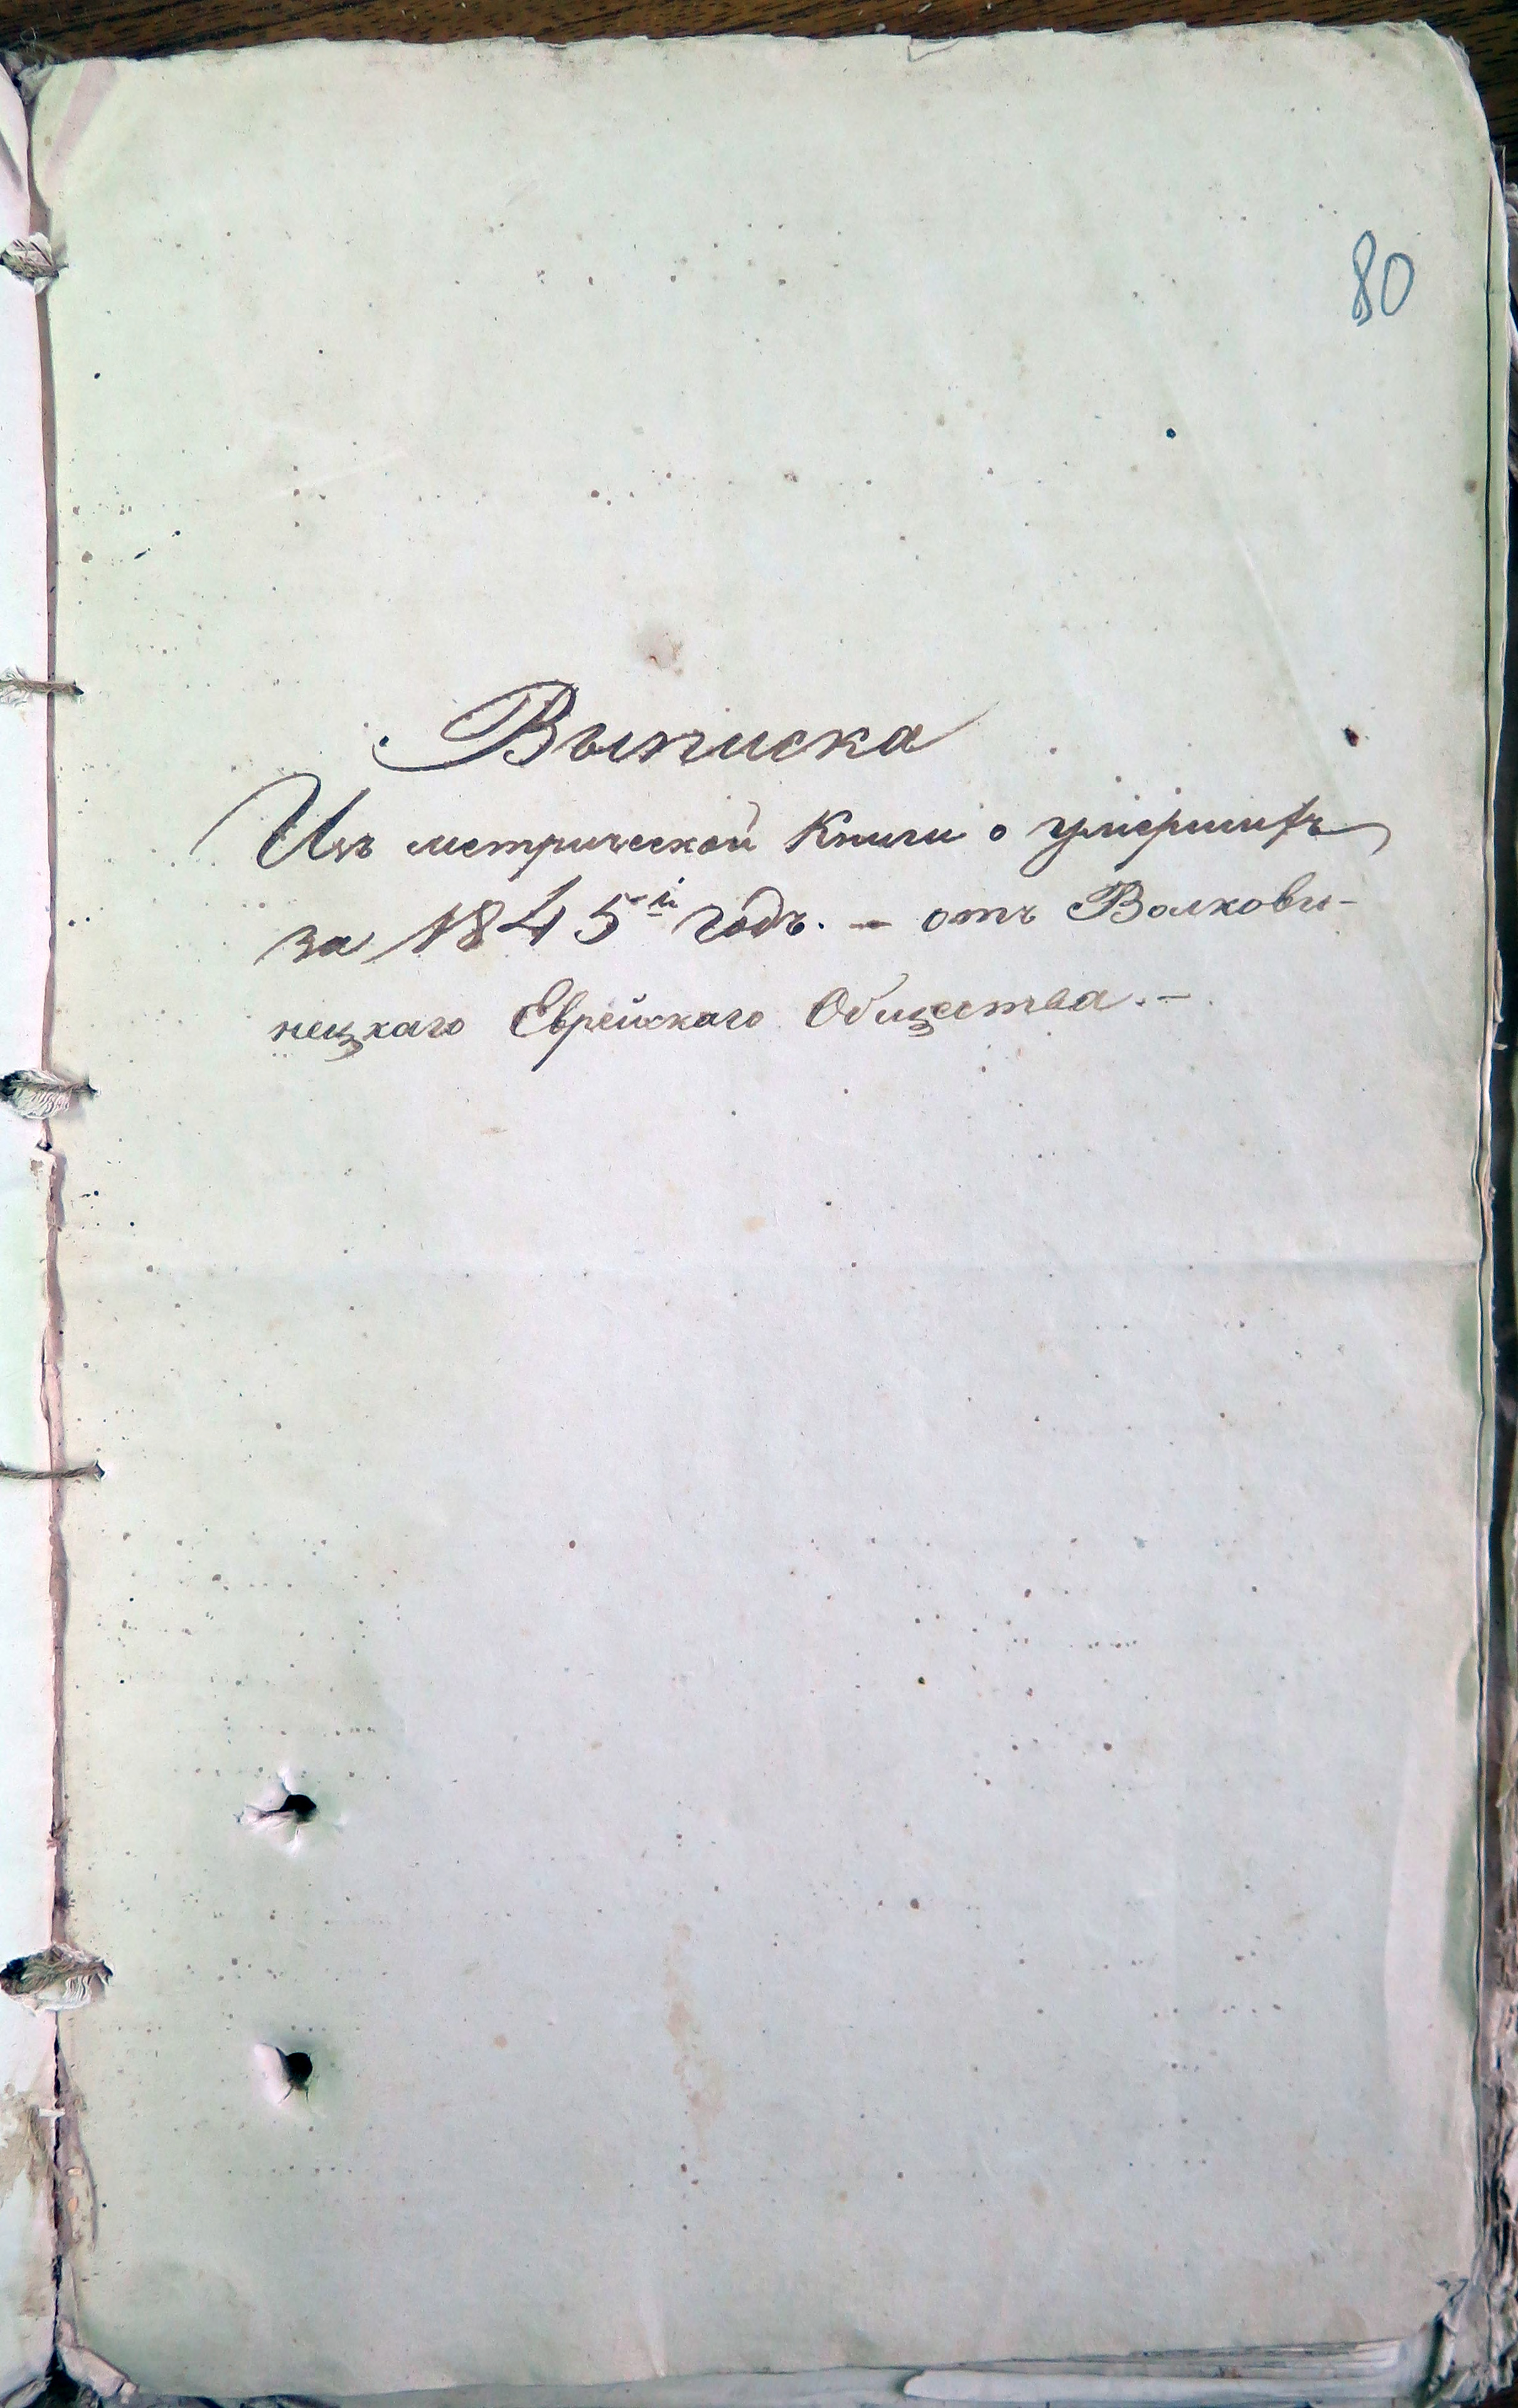 80
Выписка
Изъ метрической Книги о умершихъ
за 1845й годъ. – отъ Волкови-
нецкаго Еврейскаго Общества. –